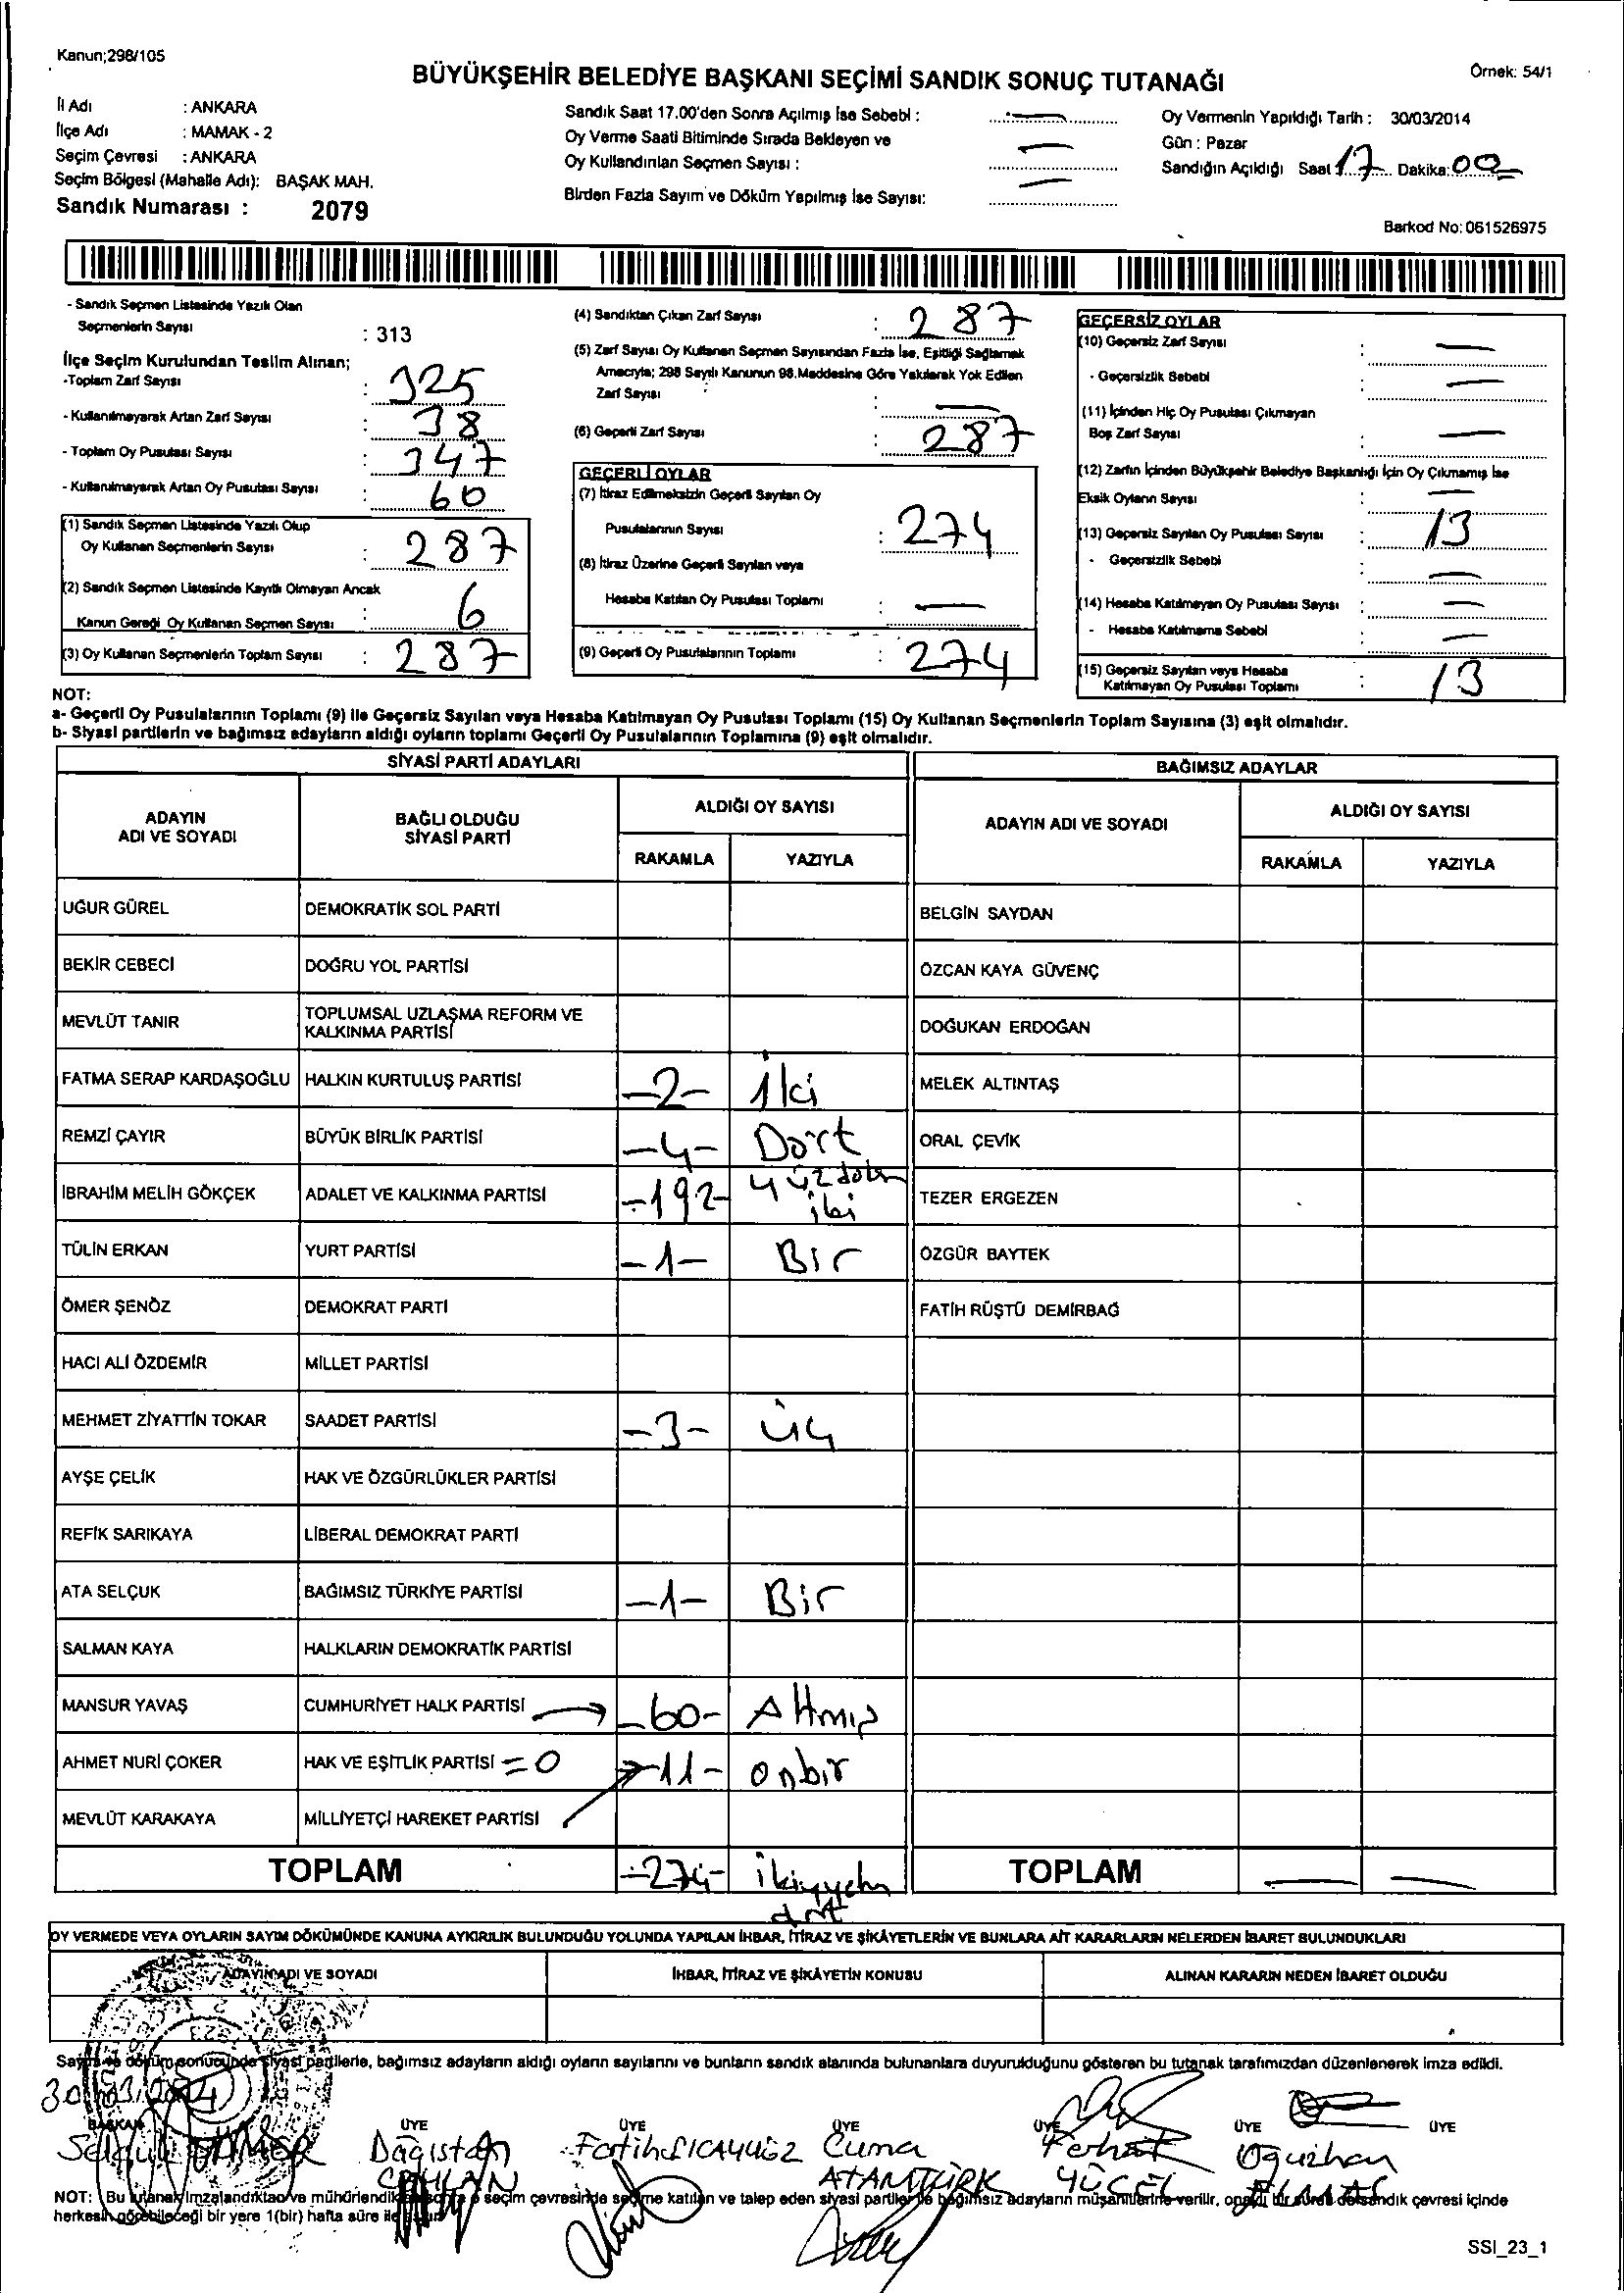 Kanun;298/105
BÜYÜKŞEHİR BELEDİYE BAŞKANI SEÇİMİ SANDIK SONUÇ TUTANAĞI
Örnek: 54/1
İl Adı : ANKARA
İlçe Adı : MAMAK - 2
Seçim Çevresi : ANKARA
Seçim Bölgesi (Mahalle Adı): BAŞAK MAH.
Sandık Numarası : 2079
Sandık Saat 17.00'den Sonra Açılmış İse Sebebi : —
Oy Verme Saati Bitiminde Sırada Bekleyen ve
Oy Kullandırılan Seçmen Sayısı : —
Birden Fazla Sayım ve Döküm Yapılmış İse Sayısı: —
Oy Vermenin Yapıldığı Tarih : 30/03/2014
Gün : Pazar
Sandığın Açıldığı Saat 17 Dakika: 00
Barkod No: 061526975
- Sandık Seçmen Listesinde Yazılı Olan
Seçmenlerin Sayısı : 313
İlçe Seçim Kurulundan Teslim Alınan;
-Toplam Zarf Sayısı : 325
- Kullanılmayarak Artan Zarf Sayısı : 38
- Toplam Oy Pusulası Sayısı : 347
- Kullanılmayarak Artan Oy Pusulası Sayısı : 60
(1) Sandık Seçmen Listesinde Yazılı Olup
Oy Kullanan Seçmenlerin Sayısı : 287
(2) Sandık Seçmen Listesinde Kayıtlı Olmayan Ancak
Kanun Gereği Oy Kullanan Seçmen Sayısı : 6
(3) Oy Kullanan Seçmenlerin Toplam Sayısı : 287
(4) Sandıktan Çıkan Zarf Sayısı : 287
(5) Zarf Sayısı Oy Kullanan Seçmen Sayısından Fazla İse, Eşitliği Sağlamak
Amacıyla; 298 Sayılı Kanunun 98.Maddesine Göre Yakılarak Yok Edilen
Zarf Sayısı : —
(6) Geçerli Zarf Sayısı : 287
GEÇERLİ OYLAR
(7) İtiraz Edilmeksizin Geçerli Sayılan Oy
Pusulalarının Sayısı : 274
(8) İtiraz Üzerine Geçerli Sayılan veya
Hesaba Katılan Oy Pusulası Toplamı : —
(9) Geçerli Oy Pusulalarının Toplamı : 274
GEÇERSİZ OYLAR
(10) Geçersiz Zarf Sayısı : —
- Geçersizlik Sebebi —
(11) İçinden Hiç Oy Pusulası Çıkmayan
Boş Zarf Sayısı : —
(12) Zarfın İçinden Büyükşehir Belediye Başkanlığı İçin Oy Çıkmamış İse
Eksik Oyların Sayısı —
(13) Geçersiz Sayılan Oy Pusulası Sayısı : 13
- Geçersizlik Sebebi —
(14) Hesaba Katılmayan Oy Pusulası Sayısı : —
- Hesaba Katılmama Sebebi —
(15) Geçersiz Sayılan veya Hesaba
Katılmayan Oy Pusulası Toplamı : 13
NOT:
a- Geçerli Oy Pusulalarının Toplamı (9) ile Geçersiz Sayılan veya Hesaba Katılmayan Oy Pusulası Toplamı (15) Oy Kullanan Seçmenlerin Toplam Sayısına (3) eşit olmalıdır.
b- Siyasi partilerin ve bağımsız adayların aldığı oyların toplamı Geçerli Oy Pusulalarının Toplamına (9) eşit olmalıdır.
SİYASİ PARTİ ADAYLARI
ADAYIN ADI VE SOYADI BAĞLI OLDUĞU SİYASİ PARTİ ALDIĞI OY SAYISI
RAKAMLA YAZIYLA
UĞUR GÜREL DEMOKRATİK SOL PARTİ
BEKİR CEBECİ DOĞRU YOL PARTİSİ
MEVLÜT TANIR TOPLUMSAL UZLAŞMA REFORM VE KALKINMA PARTİSİ
FATMA SERAP KARDAŞOĞLU HALKIN KURTULUŞ PARTİSİ -2- İki
REMZİ ÇAYIR BÜYÜK BİRLİK PARTİSİ -4- Dört
İBRAHİM MELİH GÖKÇEK ADALET VE KALKINMA PARTİSİ -192- yüzdoksn iki
TÜLİN ERKAN YURT PARTİSİ -1- Bir
ÖMER ŞENÖZ DEMOKRAT PARTİ
HACI ALİ ÖZDEMİR MİLLET PARTİSİ
MEHMET ZİYATTİN TOKAR SAADET PARTİSİ -3- üç
AYŞE ÇELİK HAK VE ÖZGÜRLÜKLER PARTİSİ
REFİK SARIKAYA LİBERAL DEMOKRAT PARTİ
ATA SELÇUK BAĞIMSIZ TÜRKİYE PARTİSİ -1- Bir
SALMAN KAYA HALKLARIN DEMOKRATİK PARTİSİ
MANSUR YAVAŞ CUMHURİYET HALK PARTİSİ → -60- Altmış
AHMET NURİ ÇOKER HAK VE EŞİTLİK PARTİSİ = 0 -11- onbir
MEVLÜT KARAKAYA MİLLİYETÇİ HAREKET PARTİSİ
TOPLAM -274-
BAĞIMSIZ ADAYLAR
ADAYIN ADI VE SOYADI ALDIĞI OY SAYISI
RAKAMLA YAZIYLA
BELGİN SAYDAN
ÖZCAN KAYA GÜVENÇ
DOĞUKAN ERDOĞAN
MELEK ALTINTAŞ
ORAL ÇEVİK
TEZER ERGEZEN
ÖZGÜR BAYTEK
FATİH RÜŞTÜ DEMİRBAĞ
TOPLAM — —
OY VERMEDE VEYA OYLARIN SAYIM DÖKÜMÜNDE KANUNA AYKIRILIK BULUNDUĞU YOLUNDA YAPILAN İHBAR, İTİRAZ VE ŞİKÂYETLERİN VE BUNLARA AİT KARARLARIN NELERDEN İBARET BULUNDUKLARI
ADAYIN ADI VE SOYADI İHBAR, İTİRAZ VE ŞİKÂYETİN KONUSU ALINAN KARARIN NEDEN İBARET OLDUĞU
Sayım ve döküm sonucunda siyasi partilerle, bağımsız adayların aldığı oyların sayılarını ve bunların sandık alanında bulunanlara duyurulduğunu gösteren bu tutanak tarafımızdan düzenlenerek imza edildi.
30/03/2014
BAŞKAN ÜYE ÜYE ÜYE ÜYE ÜYE ÜYE
Dağıstan Fatih Cuma Ferhat Oğuzhan
CEYLAN ATAMTÜRK YÜCEL ELMAS
NOT: Bu tutanak imzalandıktan ve mühürlendikten sonra o seçim çevresinde seçime katılan ve talep eden siyasi partiler ve bağımsız adayların müşahitlerine verilir, onaylı bir sureti de sandık çevresi içinde
herkesin görebileceği bir yere 1(bir) hafta süre ile asılır.
SSI_23_1